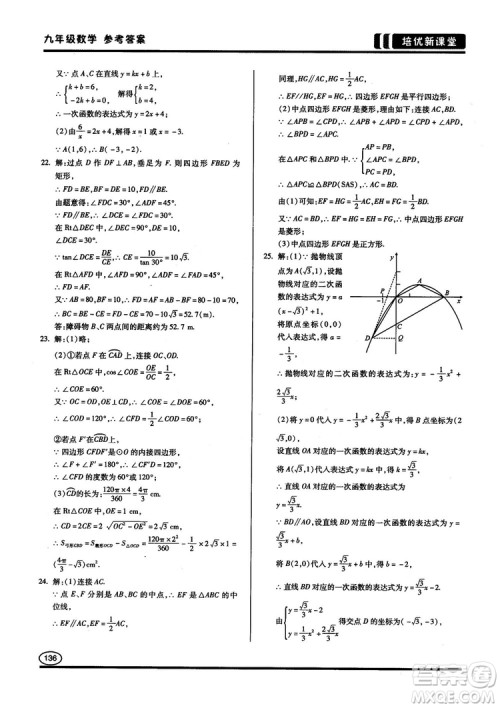 九年级数学 参考答案
培优新课堂
又∵点A,C在直线y=kx+b上,
∴{k+b=6, -2k+b=0. 解得{k=2, b=4.
∴一次函数的表达式为y=2x+4.
(2)由6/x=2x+4,解得x=1或x=-3.
∵A(1,6),∴B(-3,-2).
22. 解:过点D作DF⊥AB,垂足为F.则四边形FBED为
矩形,
∴FD=BE,BF=DE,FD∥BE.
由题意得:∠FDC=30°,∠ADF=45°.
∵FD∥BE,∴∠DCE=∠FDC=30°.
在Rt△DEC中,∠DEC=90°,DE=10,
∵tan∠DCE=DE/CE,∴CE=10/tan30°=10√3.
在Rt△AFD中,∠ADF=∠FAD=45°,
∴FD=AF.又∵AB=80,BF=DE=10,
∴FD=AF=AB-BF=80-10=70.
∴BC=BE-CE=FD-CE=70-10√3≈52.7(m).
答:障碍物B,C两点间的距离约为52.7m.
23. 解:(1)略;
(2)①若点F在CAD上,连接OC,OD.
∵在Rt△OEC中,cos∠COE=OE/OC=1/2,
∴∠COE=60°.
又∵OC=OD,OE⊥CD,
∴∠COD=120°,∴∠CFD=1/2∠COD=60°;
②若点F′在CBD上,
∵四边形CFDF′是⊙O的内接四边形,
∴∠F+∠F′=180°,∴∠F′=120°.
∴∠CFD的度数为60°或120°.
(3)CBD的长为:120π×4/180=8/3π.
∵CD=2CE=2√(OC²-OE²)=4√3,
24. 解:(1)连接AC.
∵点E,F分别是边AB,BC的中点,∴EF是△ABC的中
位线,
∴EF∥AC,EF=1/2AC.
136
同理,HG∥AC,HG=1/2AC.
∴EF∥HG,EF=HG.∴四边形EFGH是平行四边形.
(2)四边形EFGH是菱形.理由如下:连接AC,BD.
∵∠APB=∠CPD,∴∠APB+∠APD=∠CPD+∠APD,
即∠BPD=∠APC.又∵{AP=BP, PD=PC,
∴△APC≌△BPD(SAS),∴AC=BD.
由(1)可知:HG=EF=1/2AC,EH=FG=1/2BD,
∴EF=FG=HG=EH,∴四边形EFGH
是菱形;
(3)四边形EFGH是正方形.
25. 解:(1)∵抛物线顶
点为A(√3,1),设抛
物线对应的二次函
数的表达式为y=a
(x-√3)²+1,
将原点坐标(0,0)代
入表达式,得a=
-1/3.
∴抛物线对应的二次函数的表达式为:y=-1/3x²+
2√3/3x.
(2)将y=0代入y=-1/3x²+2√3/3x中,得B点坐标为:
(2√3,0),
设直线OA对应的一次函数的表达式为y=kx,
将A(√3,1)代入表达式y=kx中,得k=√3/3,
∴直线OA对应的一次函数的表达式为y=√3/3x.
∵BD∥AO,设直线BD对应的一次函数的表达式为y=
√3/3x+b,
将B(2√3,0)代入y=√3/3x+b中,得b=-2,
∴直线BD对应的一次函数的表达式为y=√3/3x-2.
由{y=√3/3x-2, y=-1/3x²+2√3/3x 得交点D的坐标为(-√3,-3),